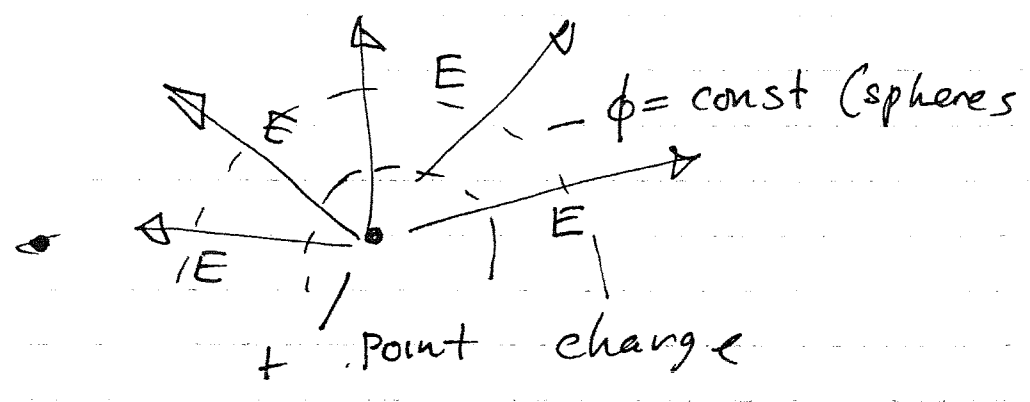 E
E
ϕ = const (spheres
E
E
+ point charge